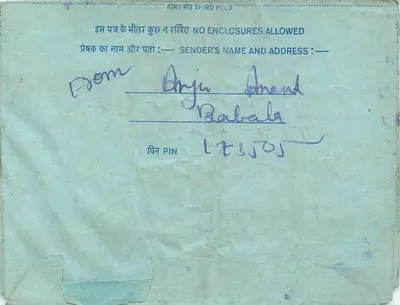 तीसरा मोड़ THIRD FOLD
इस पत्र के भीतर कुछ न रखिए NO ENCLOSURES ALLOWED
प्रेषक का नाम और पता :— SENDER'S NAME AND ADDRESS :—
From Anju Anand
Babala
पिन PIN 173505